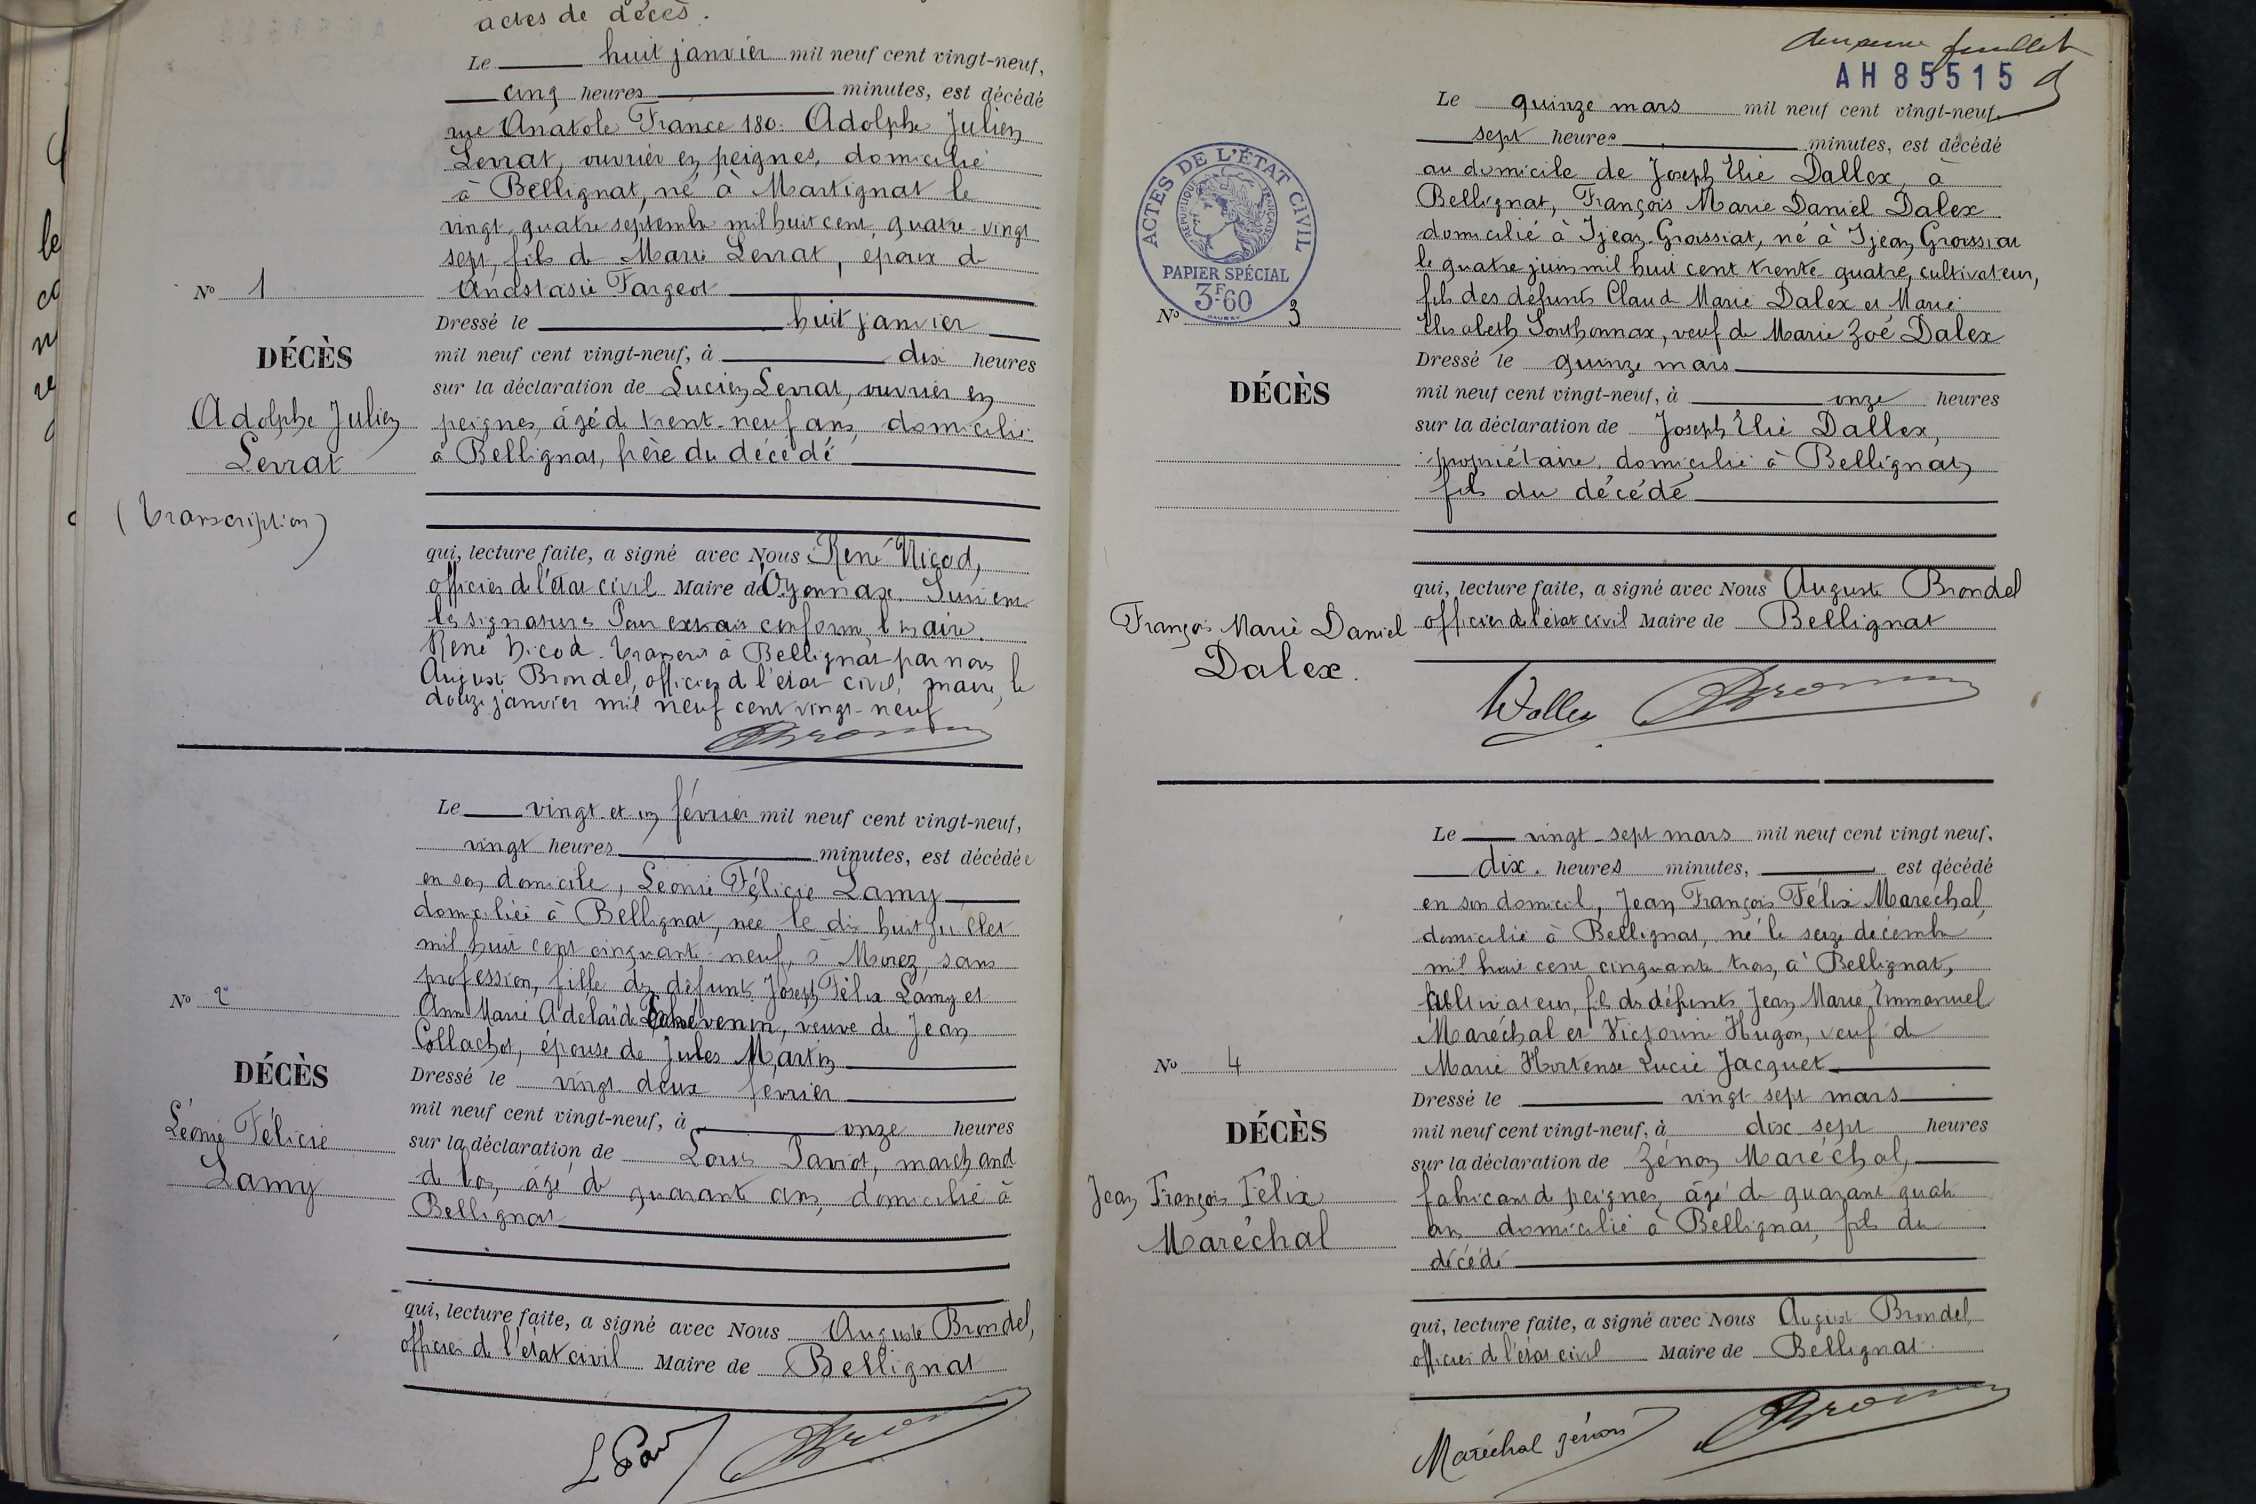 actes de décès.
Le huit janvier mil neuf cent vingt-neuf,
cinq heures minutes, est décédé
rue Anatole France 180. Adolphe Julien
Levrat, ouvrier en peignes, domicilié
à Bellignat, né à Martignat le
vingt quatre septembre mil huit cent quatre-vingt
sept, fils de Marie Levrat, époux de
Anastasie Fargeot
Nº 1
Dressé le huit janvier
DÉCÈS
mil neuf cent vingt-neuf, à dix heures
sur la déclaration de Lucien Levrat, ouvrier en
Adolphe Julien
peignes, âgé de trent-neuf ans, domicilié
Levrat
à Bellignat, frère du décédé
(Transcription)
qui, lecture faite, a signé avec Nous René Nicod,
officier de l'état civil Maire de Oyonnax. Suivent
les signatures Pour extrait conforme, l maire.
René Nicod. Transcrit à Bellignat par nous
Auguste Brondel, officier de l'état civil, maire, le
douze janvier mil neuf cent vingt-neuf
Le vingt et un février mil neuf cent vingt-neuf,
vingt heures minutes, est décédée
en son domicile, Léonie Félicie Lamy
domiciliée à Bellignat, née le dix huit juillet
mil huit cent cinquante-neuf, à Morez, sans
profession, fille des défunts Joseph Félix Lamy et
Nº 2
Anne Marie Adélaïde venin, veuve de Jean
Collachot, épouse de Jules Martin
DÉCÈS
Dressé le vingt deux fevrier
mil neuf cent vingt-neuf, à onze heures
Léonie Félicie
sur la déclaration de Louis Paviot, marchand
Lamy
de bois, âgé de quarante ans, domicilié à
Bellignat
qui, lecture faite, a signé avec Nous Auguste Brondel,
officier de l'état civil Maire de Bellignat
L Pav
deuxième feuillet
AH 85515
Le quinze mars mil neuf cent vingt-neuf
sept heures minutes, est décédé
au domicile de Joseph Elie Dallex, à
Bellignat, François Marie Daniel Dalex
domicilié à Ijean-Groissiat, né à Ijean Groissiat
le quatre juin mil huit cent trente-quatre, cultivateur,
fils des défunts Claud Marie Dalex et Marie
Elisabeth Sonthonnax, veuf de Marie Zoé Dalex
ACTES DE L'ÉTAT CIVIL
RÉPUBLIQUE FRANÇAISE
PAPIER SPÉCIAL
3F60
Nº 3
Dressé le quinze mars
DÉCÈS
mil neuf cent vingt-neuf, à onze heures
sur la déclaration de Joseph Elie Dallex,
propriétaire, domicilié à Bellignat,
fils du décédé
qui, lecture faite, a signé avec Nous Auguste Brondel
François Marie Daniel
officier de l'état civil Maire de Bellignat
Dalex.
Le vingt-sept mars mil neuf cent vingt neuf.
dix. heures minutes, est décédé
en son domicil, Jean François Félix Maréchal,
domicilié à Bellignat, né le seize décembre
mil huit cent cinquante trois, à Bellignat,
cultivateur, fils des défunts Jean Marie Emmanuel
Maréchal et Victorine Hugon, veuf de
Nº 4
Marie Hortense Lucie Jacquet
DÉCÈS
Dressé le vingt sept mars
mil neuf cent vingt-neuf, à dix sept heures
sur la déclaration de Zénon Maréchal,
Jean François Félix
fabricant de peignes, âgé de quarante quatre
Maréchal
ans domicilié à Bellignat, fils du
décédé
qui, lecture faite, a signé avec Nous August Brondel
officier de l'état civil Maire de Bellignat.
Maréchal Zénon